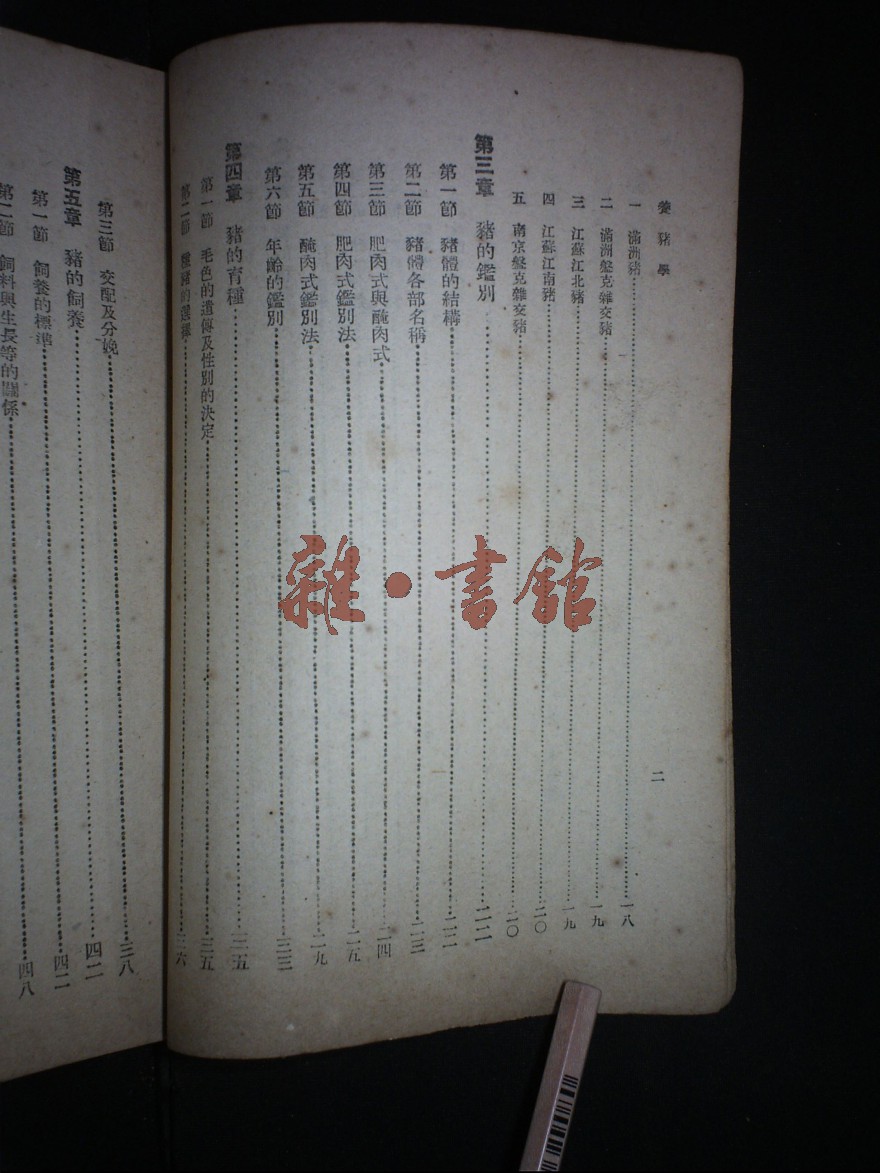 養豬學
二
一 滿洲豬……一八
二 滿洲盤克雜交豬……一九
三 江蘇江北豬……一九
四 江蘇江南豬……二〇
五 南京盤克雜交豬……二〇
第三章 豬的鑑別……二二
第一節 豬體的結構……二二
第二節 豬體各部名稱……二三
第三節 肥肉式與醃肉式……二四
第四節 肥肉式鑑別法……二五
第五節 醃肉式鑑別法……二九
第六節 年齡的鑑別……三三
第四章 豬的育種……三五
第一節 毛色的遺傳及性別的決定……三五
第二節 豬的選擇……三六
第三節 交配及分娩……三八
第五章 豬的飼養……四二
第一節 飼養的標準……四二
第二節 飼料與生長等的關係……四八
雜·書館